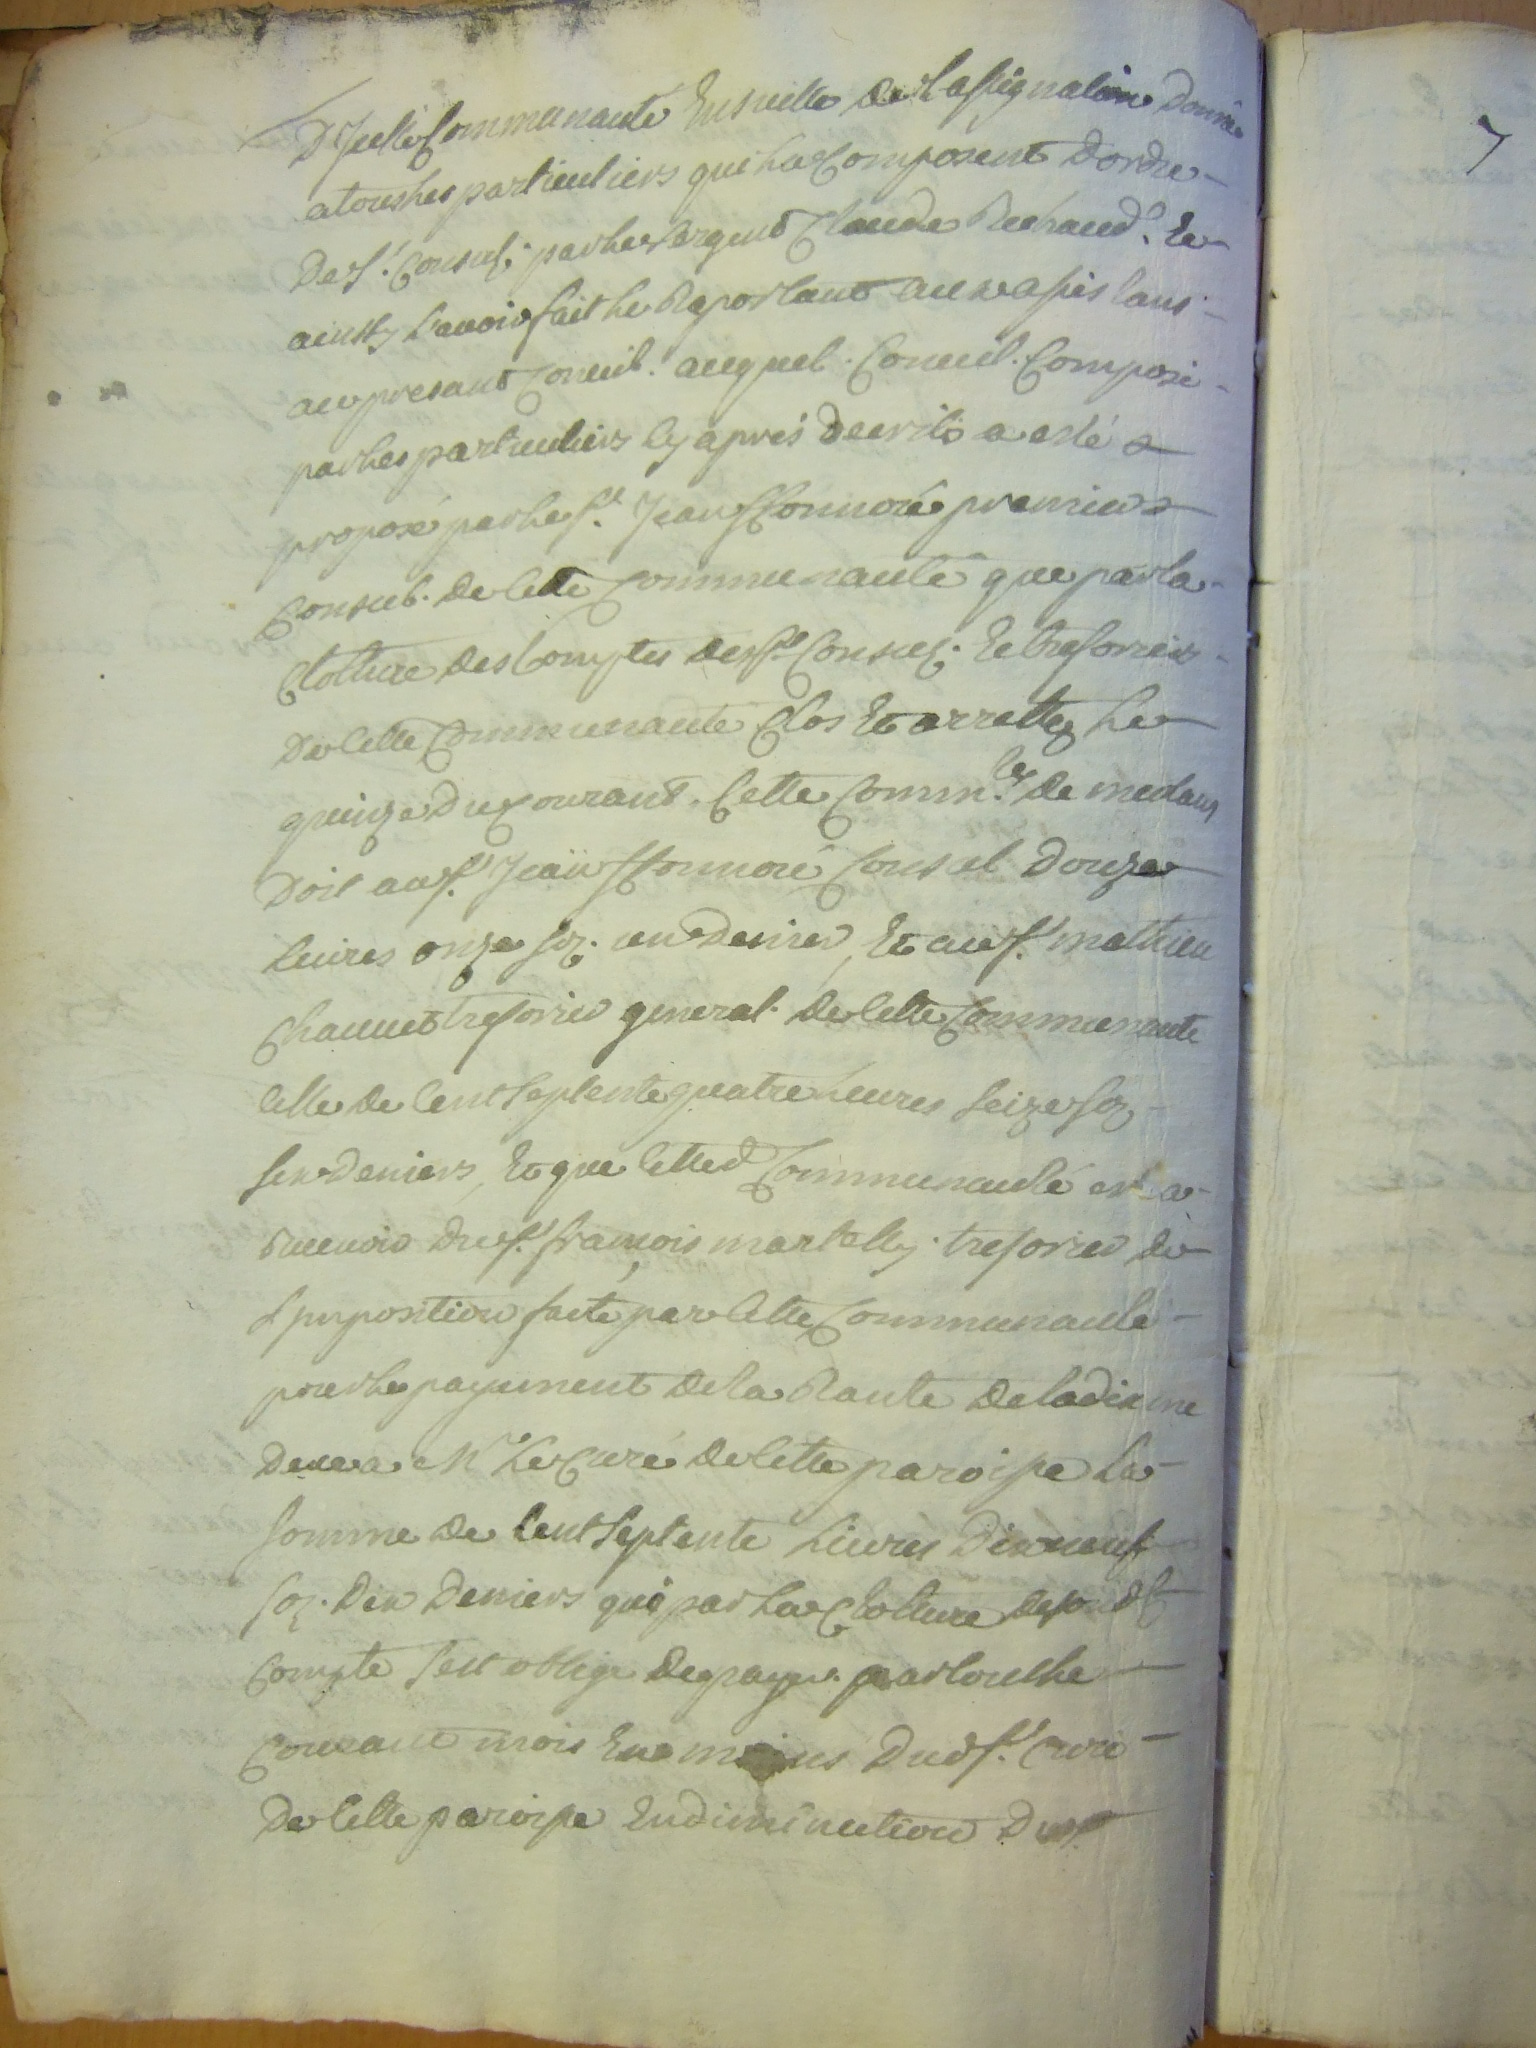 D'Icelle Communauté Ensuitte de l'assignation Donnée
a tous les particuliers qui la Composent D'ordre
des S.rs Consulz par le sergent Claude Richaud. Et
ainsy l'avoir fait le Raportant
au presant Conseil. auquel Conseil. Composé
par les particuliers Cy après Decrits a esté
proposé par le S.r Jean Honnoré premier
Consul. de Cette Communauté que par la
Clotture des Comptes des S.rs Consulz. Et tresoriers
de Cette Communauté Clos Et arrettez Le
quinze du Courant. Cette Comm.té de
Doit au S.r Jean Honnoré Consul Douze
Livres onze solz. un Denier, Et au S.r mathieu
Chauvet tresorier general. de Cette Communauté
Celle de Cent septente quatre Livres seize solz
six Deniers, Et que Cetted. Communauté en a
du S.r françois martelly. tresorier de
L'Imposition faite par Cette Communauté
pour le payement de la Rante de la dixme
Deue a M.r Le Curé de Cette paroisse La
somme de Cent septente Livres Dix neuf
solz. Dix Deniers qui par La Clotture de son d.t
Compte s'est obligé de payer. par tout le
Courant mois En mains Dud S.r Curé
de Cette paroisse En diminution Du
7